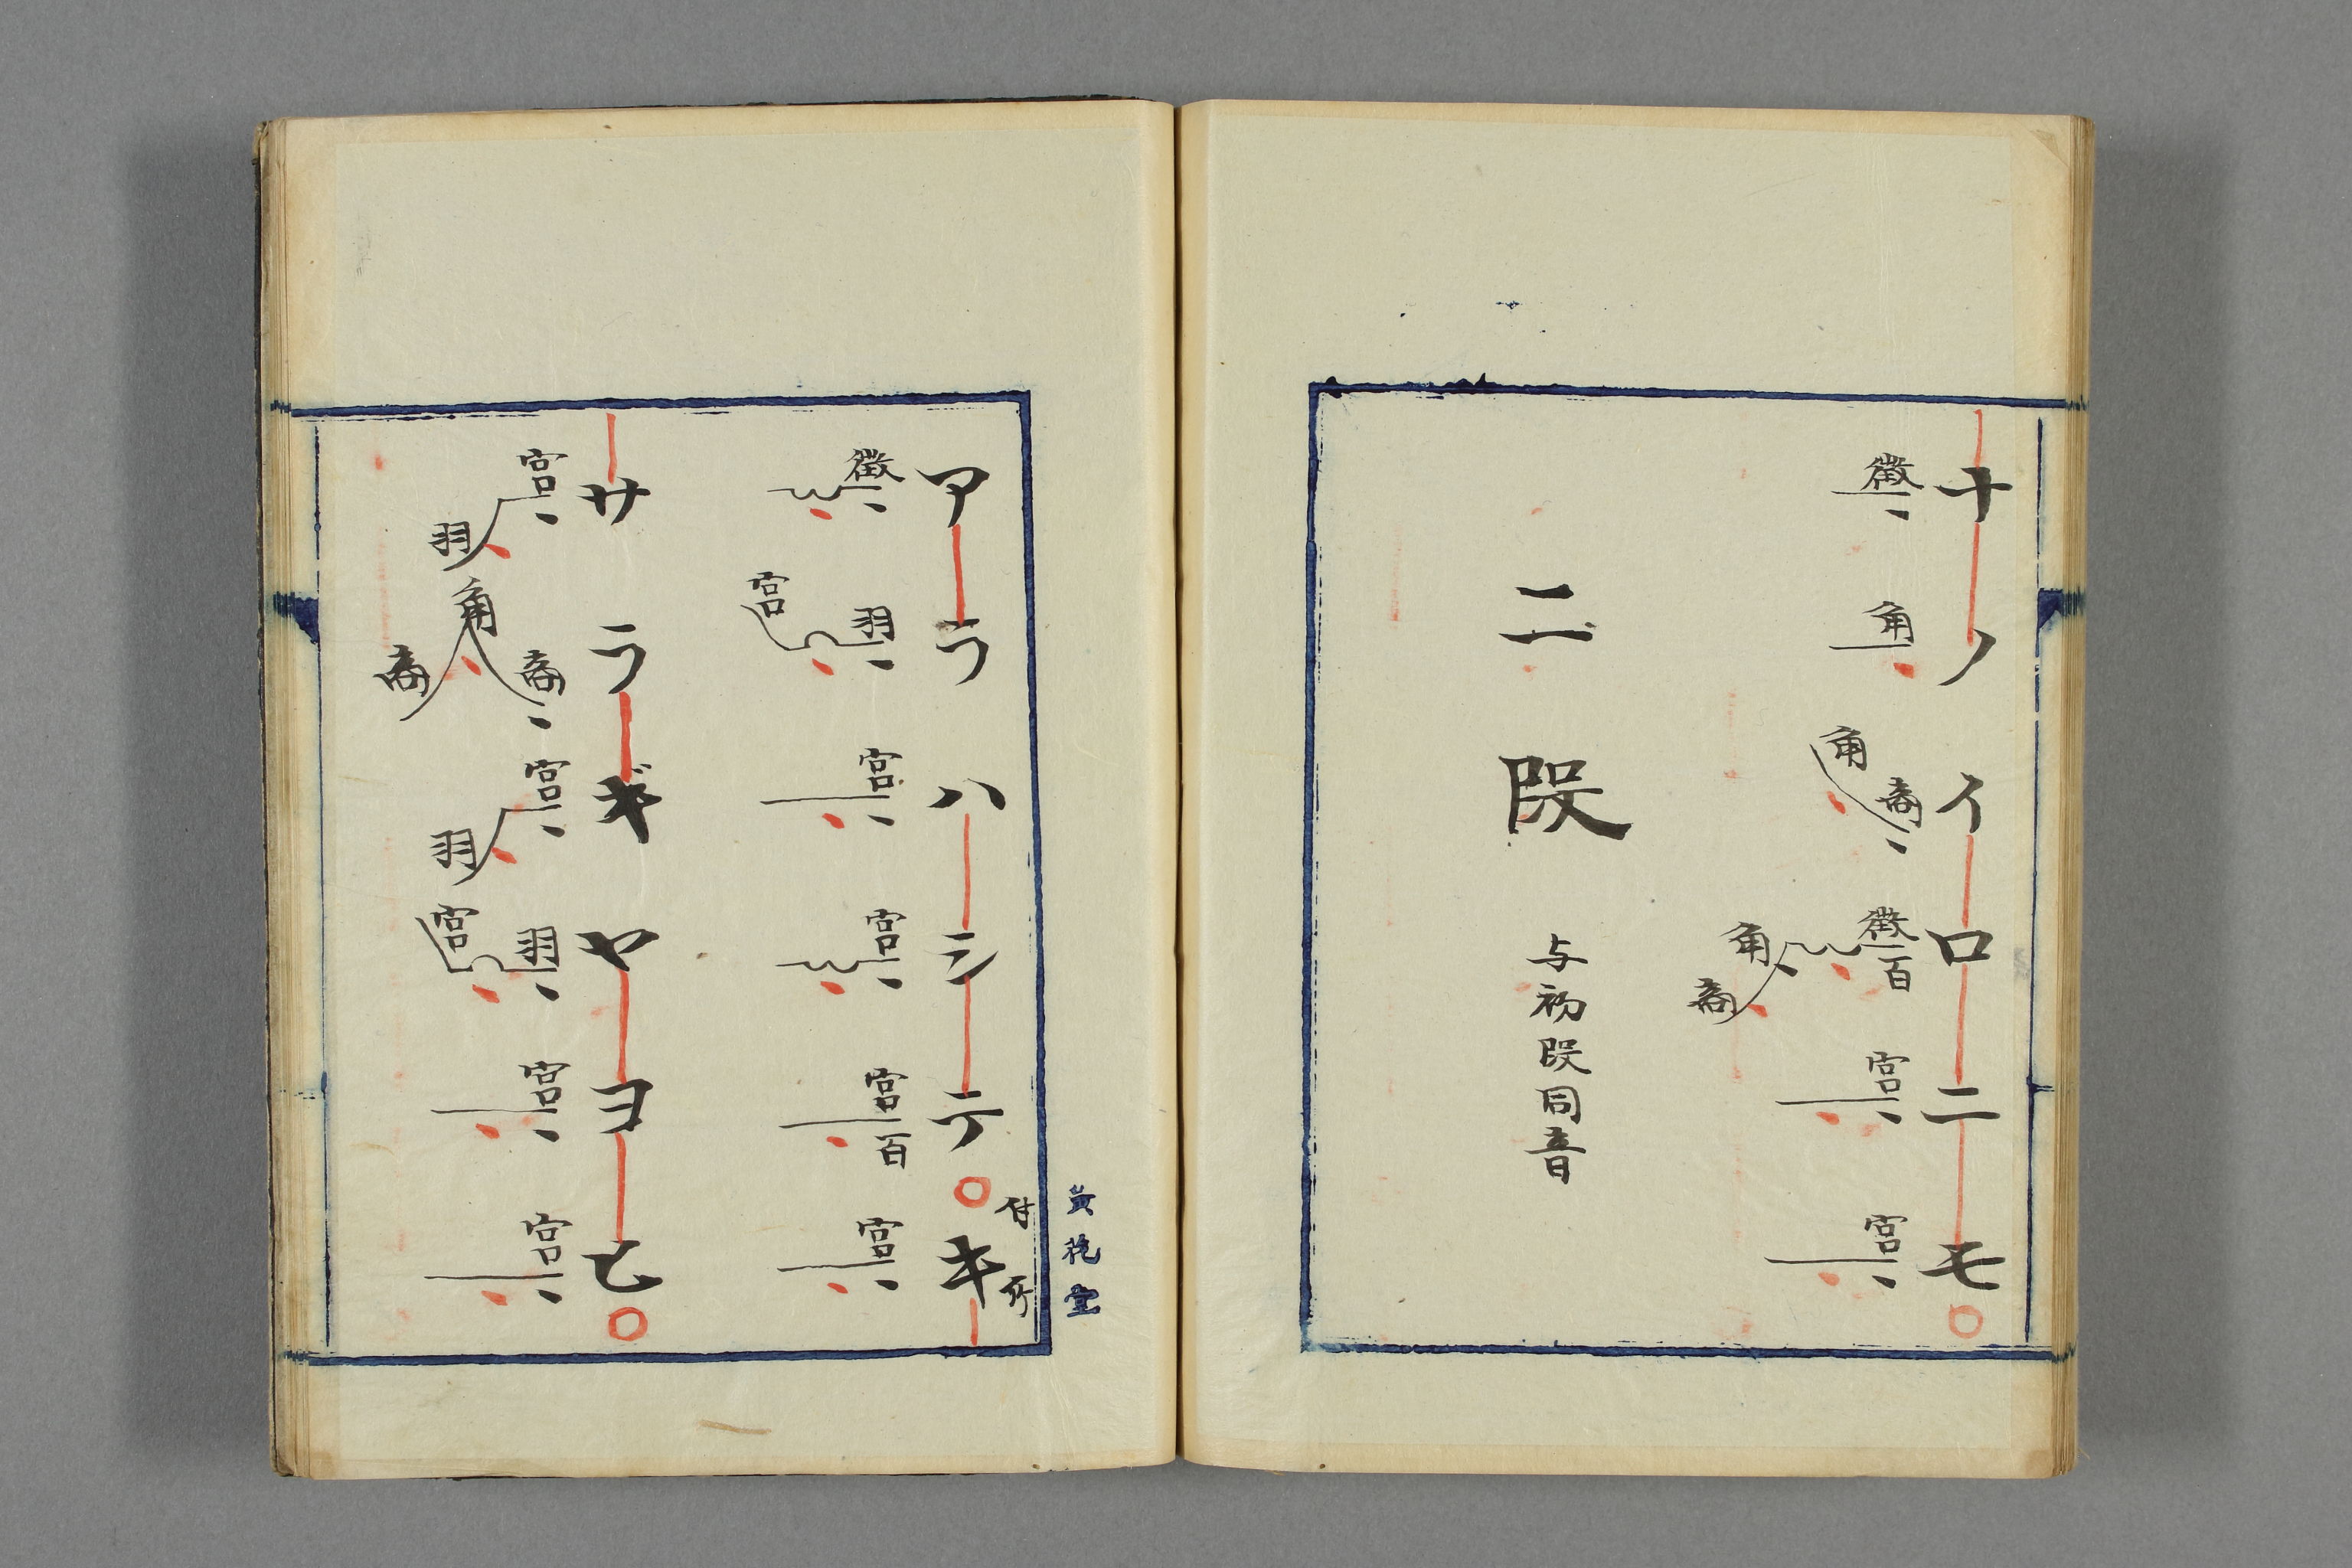 ナノイロニモ
徴 角 角 商 徴 百 角 商 宮 宮
二段 与初段同音
黄苑堂
付所
アラハシテ キ
徴 宮 羽 宮 宮 宮 百 宮
サラギヤヨ乙
宮 羽 角 商 商 宮 羽 宮 羽 宮 宮